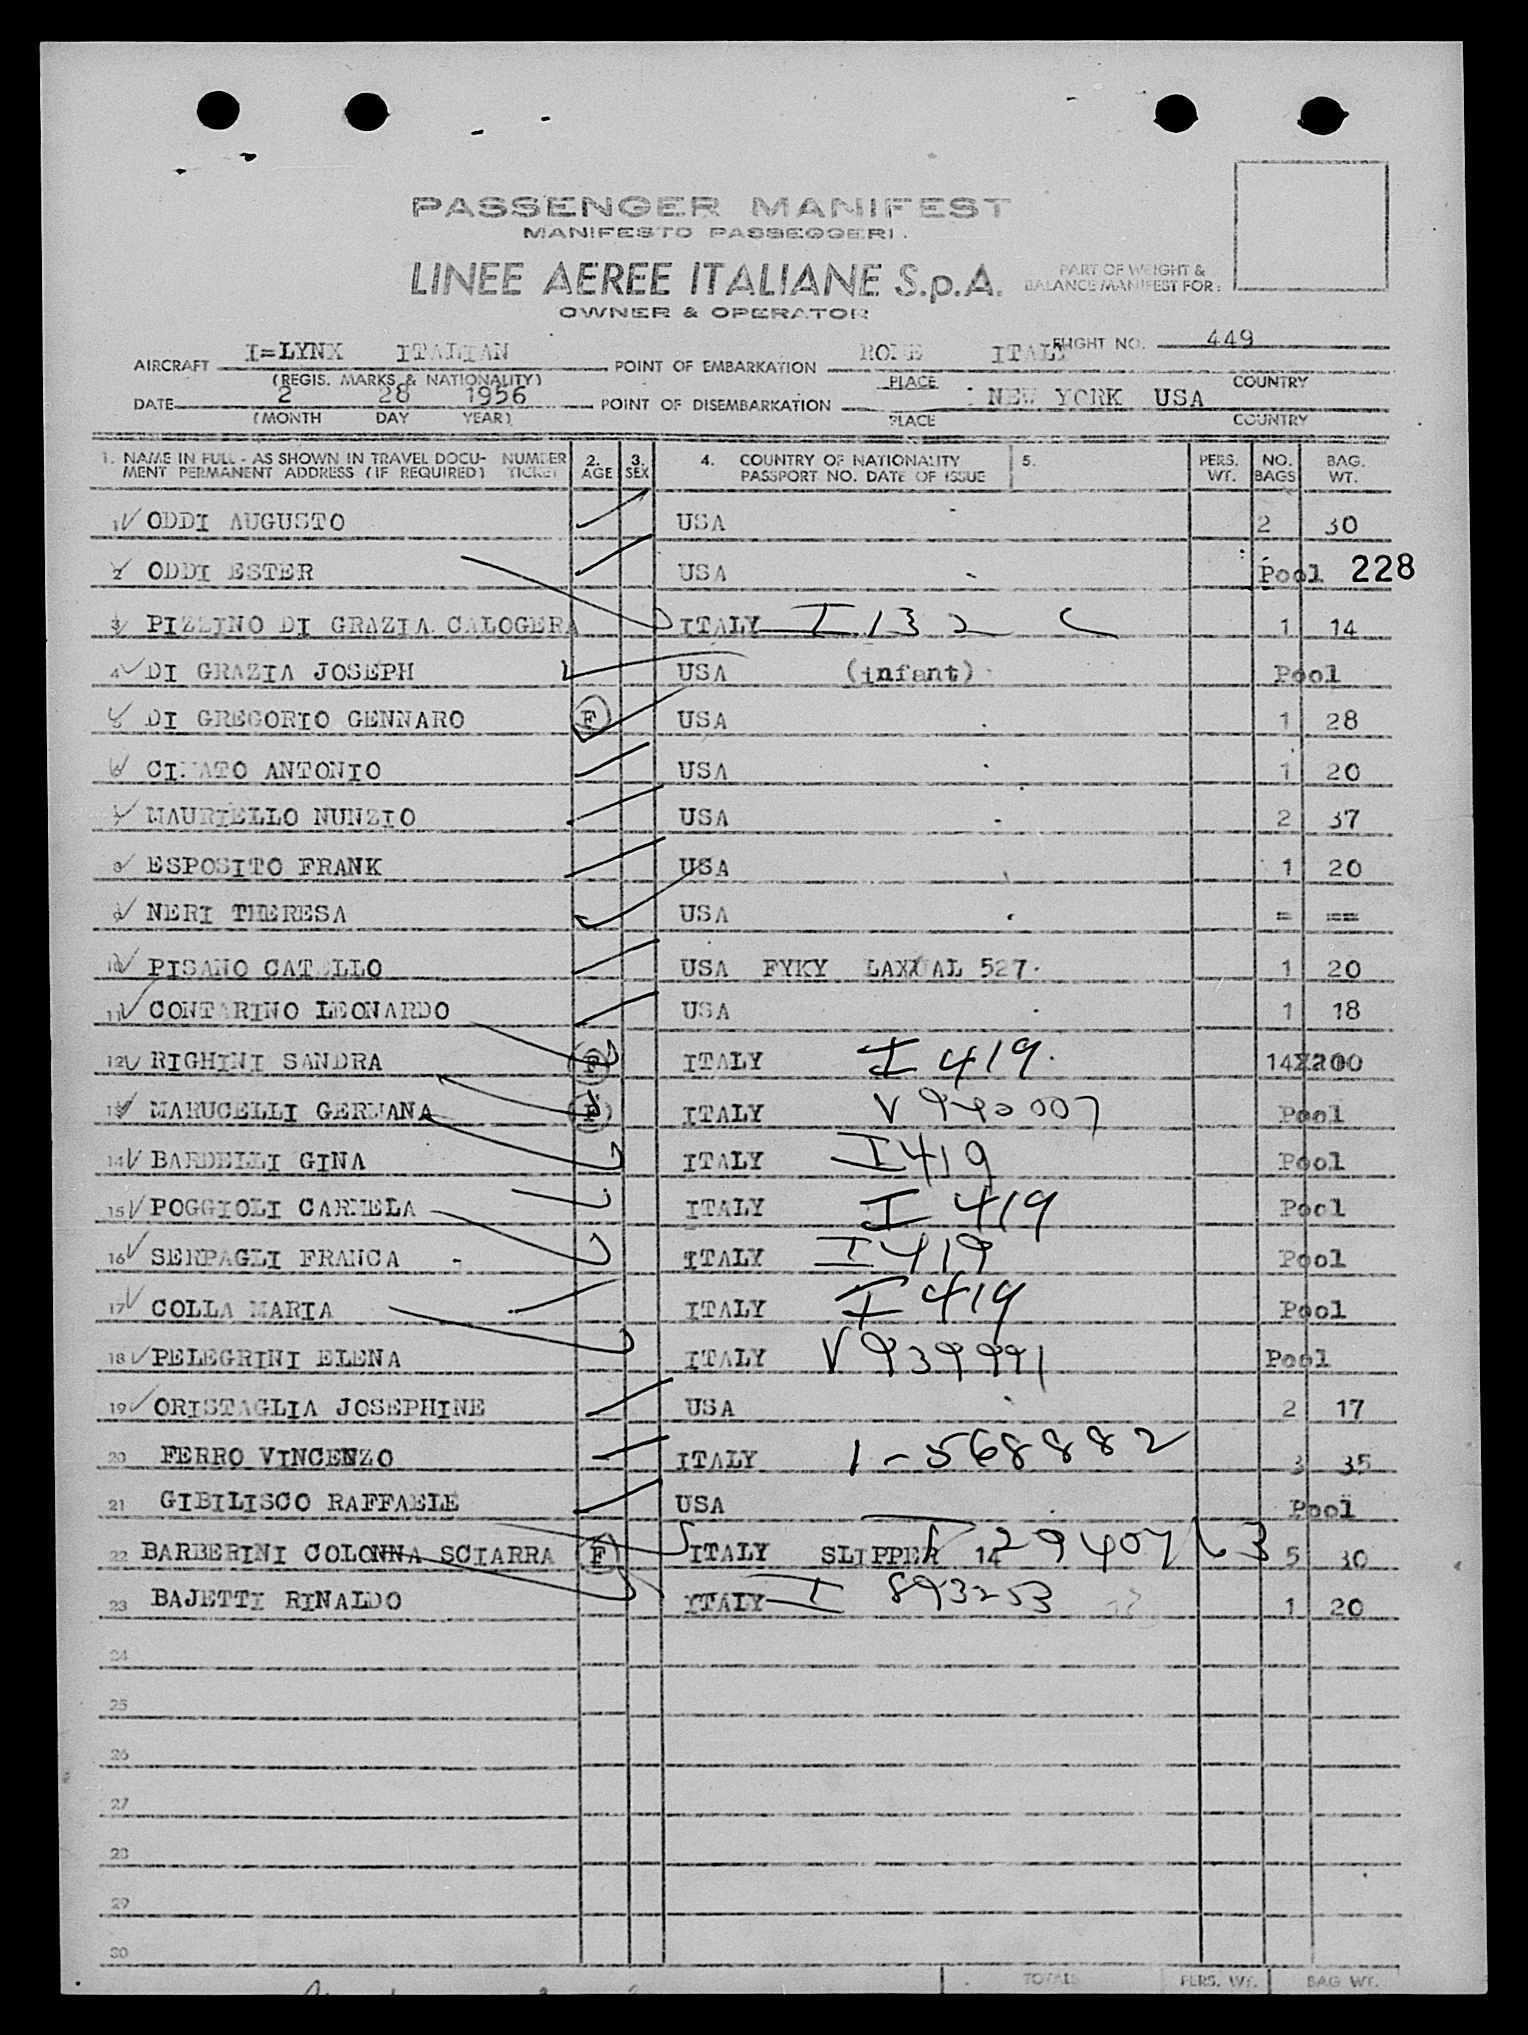 PASSENGER MANIFEST
MANIFESTO PASSEGGERI.
LINEE AEREE ITALIANE S.p.A.
OWNER & OPERATOR
PART OF WEIGHT &
BALANCE MANIFEST FOR:
AIRCRAFT I=LYNX ITALIAN POINT OF EMBARKATION ROME ITALY FLIGHT NO. 449
(REGIS. MARKS & NATIONALITY) PLACE COUNTRY
DATE 2 28 1956 POINT OF DISEMBARKATION NEW YORK USA
(MONTH DAY YEAR) PLACE COUNTRY
1. NAME IN FULL - AS SHOWN IN TRAVEL DOCU- NUMBER 2. 3. 4. COUNTRY OF NATIONALITY 5. PERS. NO. BAG.
MENT PERMANENT ADDRESS (IF REQUIRED) TICKET AGE SEX PASSPORT NO. DATE OF ISSUE WT. BAGS WT.
1 ODDI AUGUSTO USA 2 30
2 ODDI ESTER USA Pool 228
3 PIZZINO DI GRAZIA CALOGERA ITALY I 132 1 14
4 DI GRAZIA JOSEPH USA (infant) Pool
5 DI GREGORIO GENNARO F USA 1 28
6 ANTONIO USA 1 20
7 MAURIELLO NUNZIO USA 2 37
8 ESPOSITO FRANK USA 1 20
9 NERI THERESA USA = ==
10 PISANO CATELLO USA FYKY LAXXAL 527 1 20
11 CONTARINO LEONARDO USA 1 18
12 RIGHINI SANDRA F ITALY I 419 14 200
13 MARUCELLI GERMANA F ITALY V 940007 Pool
14 BARDELLI GINA ITALY I 419 Pool
15 POGGIOLI CARMELA ITALY I 419 Pool
16 SERPAGLI FRANCA - ITALY I 419 Pool
17 COLLA MARIA ITALY I 419 Pool
18 PELEGRINI ELENA ITALY V 939991 Pool
19 ORISTAGLIA JOSEPHINE USA 2 17
20 FERRO VINCENZO ITALY 1-568882 3 35
21 GIBILISCO RAFFAELE USA Pool
22 BARBERINI COLONNA SCIARRA F ITALY SLIPPER 14 5 30
23 BAJETTI RINALDO ITALY I 893253 1 20
24
25
26
27
28
29
30
TOTALS PERS. WT. BAG WT.